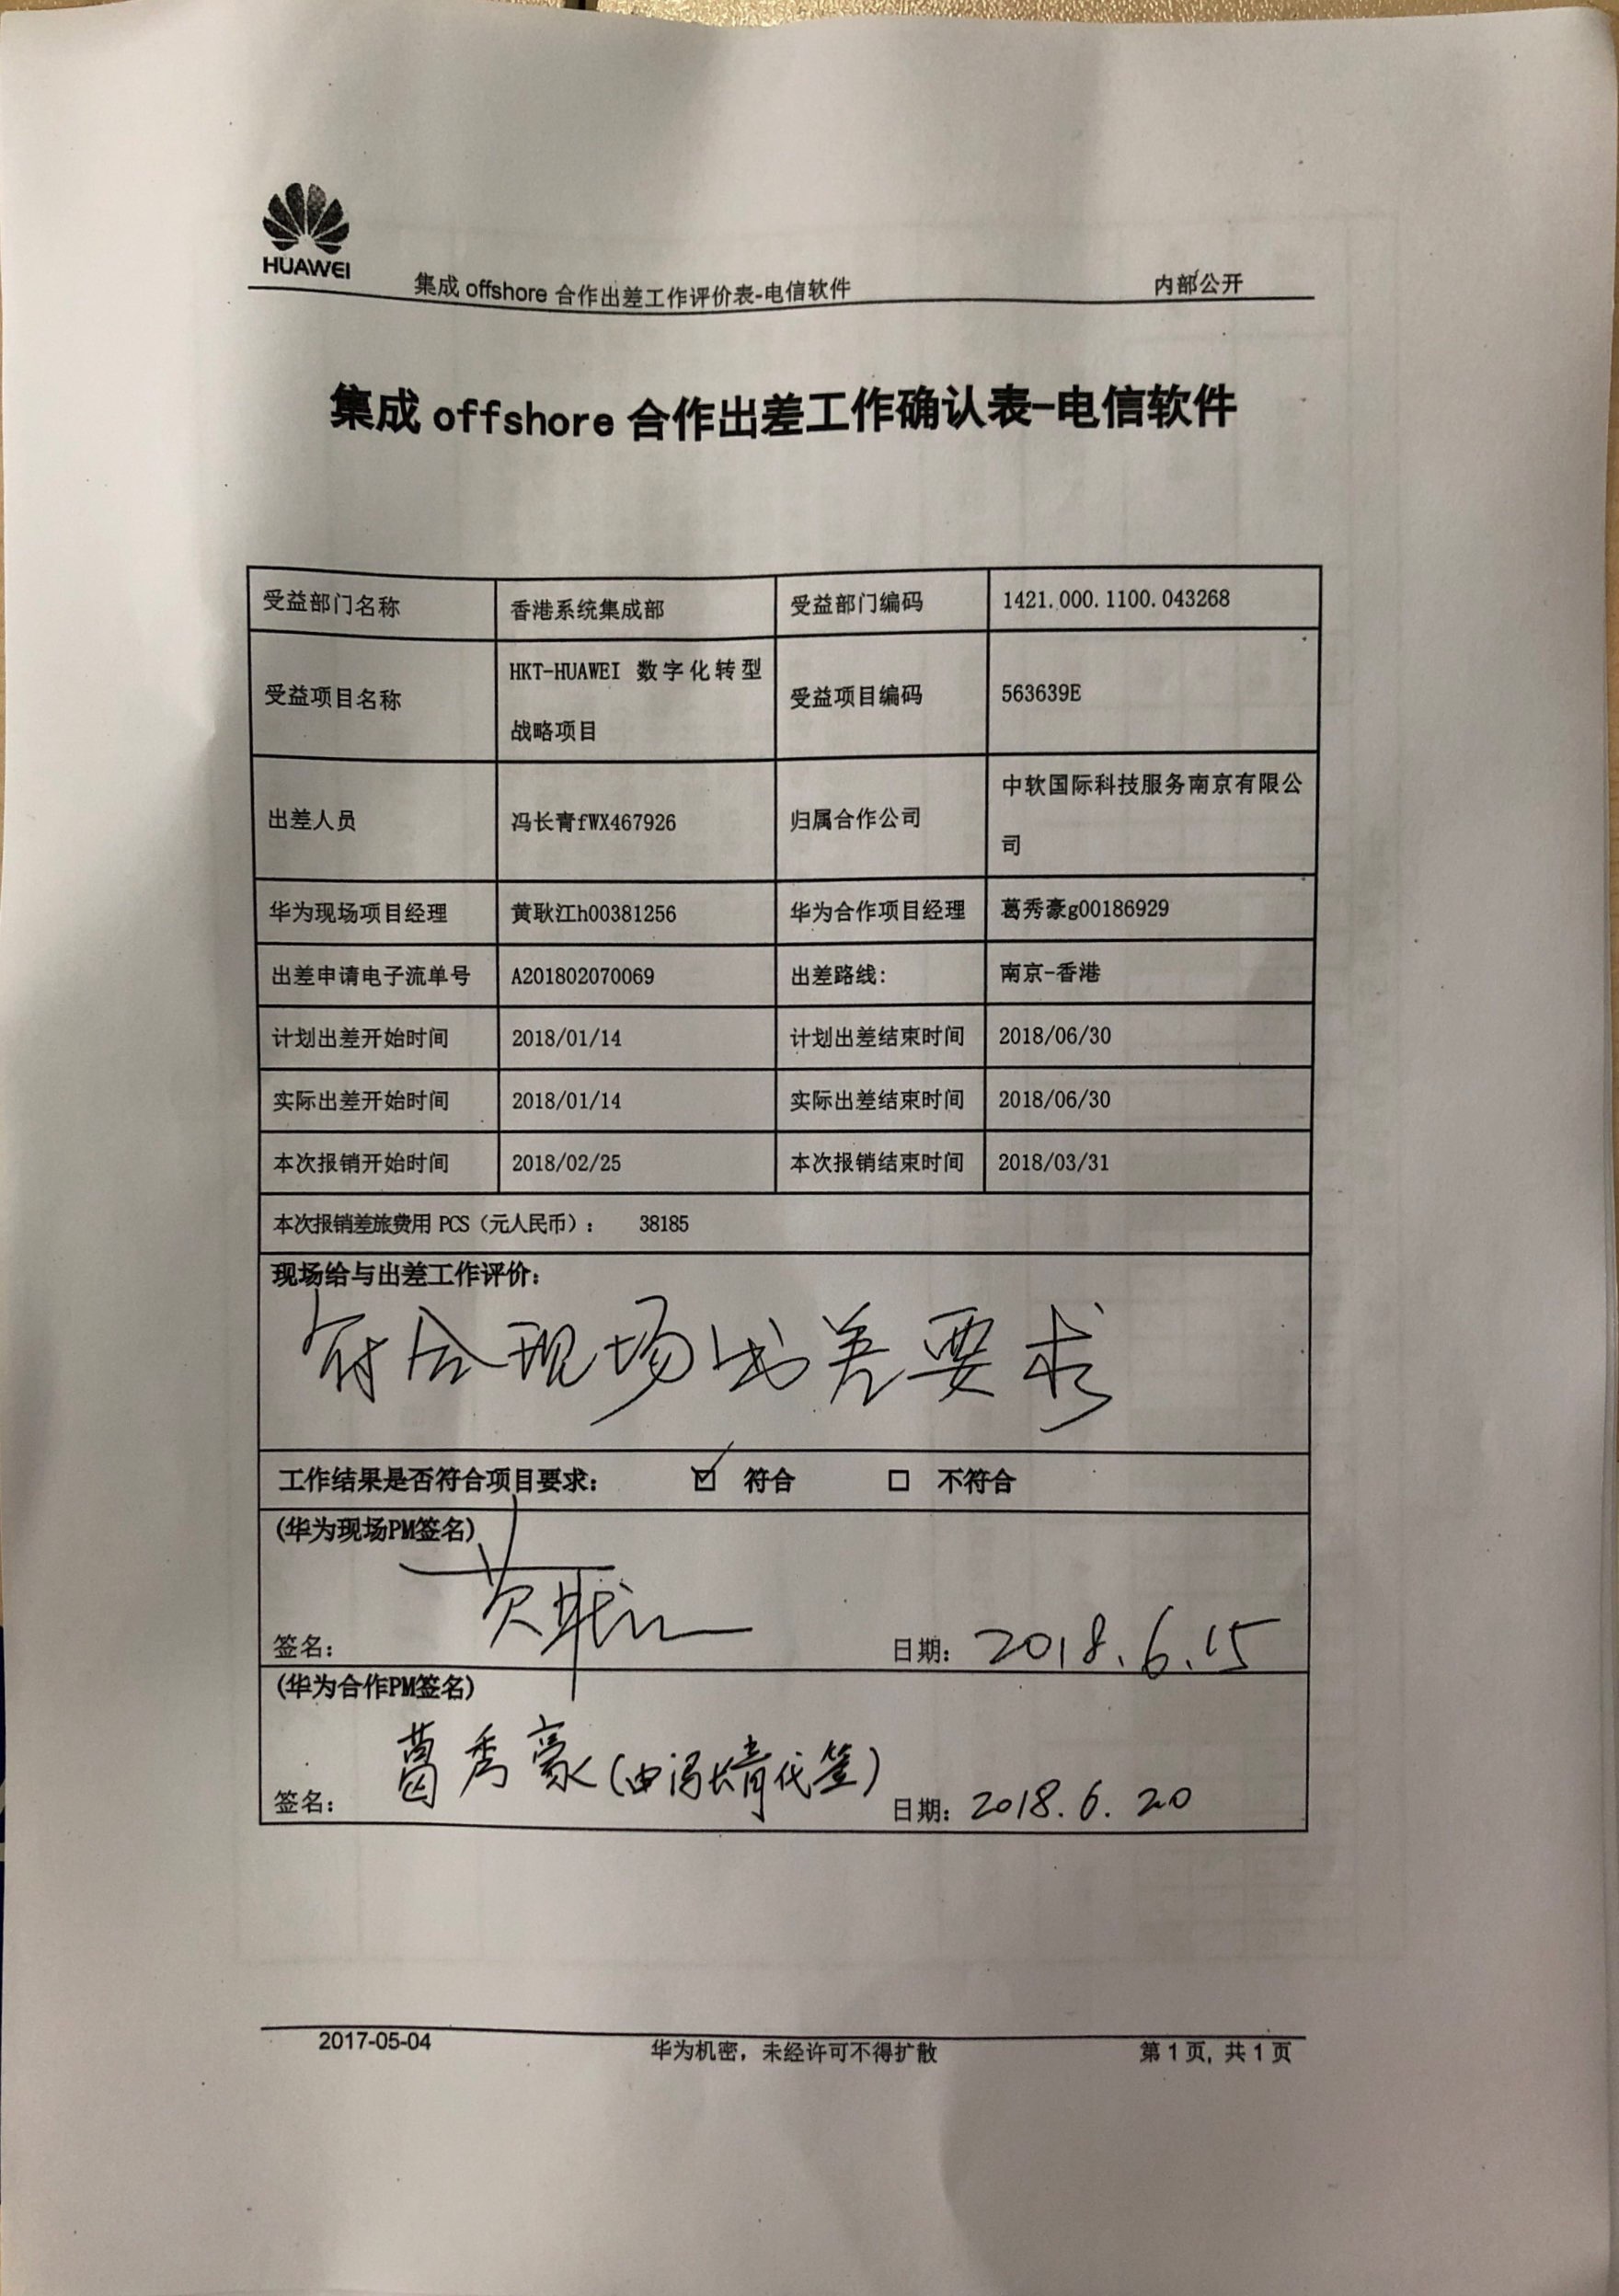 HUAWEI
集成 offshore 合作出差工作评价表-电信软件 内部公开
集成 offshore 合作出差工作确认表-电信软件
受益部门名称 香港系统集成部 受益部门编码 1421.000.1100.043268
受益项目名称 HKT-HUAWEI 数字化转型
战略项目 受益项目编码 563639E
出差人员 冯长青fWX467926 归属合作公司 中软国际科技服务南京有限公
司
华为现场项目经理 黄耿江h00381256 华为合作项目经理 葛秀豪g00186929
出差申请电子流单号 A201802070069 出差路线: 南京-香港
计划出差开始时间 2018/01/14 计划出差结束时间 2018/06/30
实际出差开始时间 2018/01/14 实际出差结束时间 2018/06/30
本次报销开始时间 2018/02/25 本次报销结束时间 2018/03/31
本次报销差旅费用 PCS（元人民币）： 38185
现场给与出差工作评价:
符合现场出差要求
工作结果是否符合项目要求: ☑ 符合 □ 不符合
(华为现场PM签名)
签名: 黄耿江 日期: 2018.6.15
(华为合作PM签名)
签名: 葛秀豪(由冯长青代签) 日期: 2018.6.20
2017-05-04 华为机密，未经许可不得扩散 第1页, 共1页